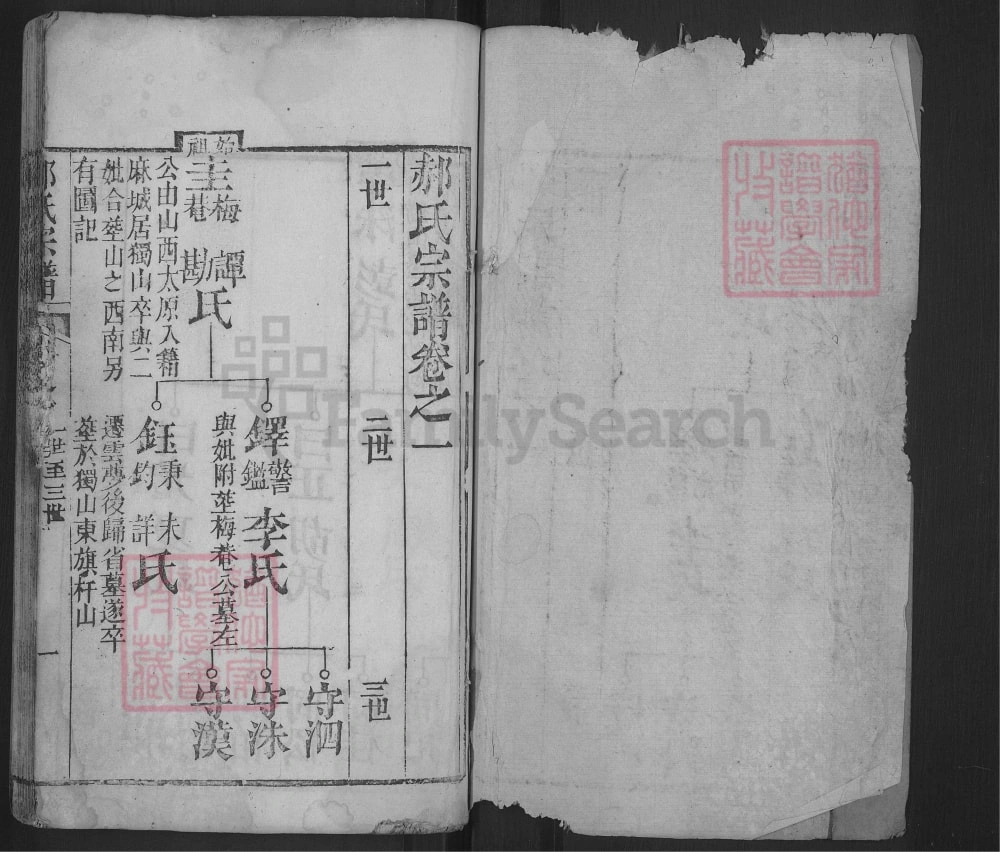 郝氏宗譜卷之一
一世
二世
三世
始祖
主
梅巷
譚
勘
氏
公由山西太原入籍
麻城居獨山卒與二
妣合塟山之西南另
有圖記
鐸
警鑑
李氏
與妣附塟梅巷公墓左
鈺
秉鈞
未詳
氏
遷雲夢後歸省墓遂卒
塟於獨山東旗杆山
守泗
守洙
守漢
氏宗譜
一世至三世
一
譜學會
收藏
FamilySearch